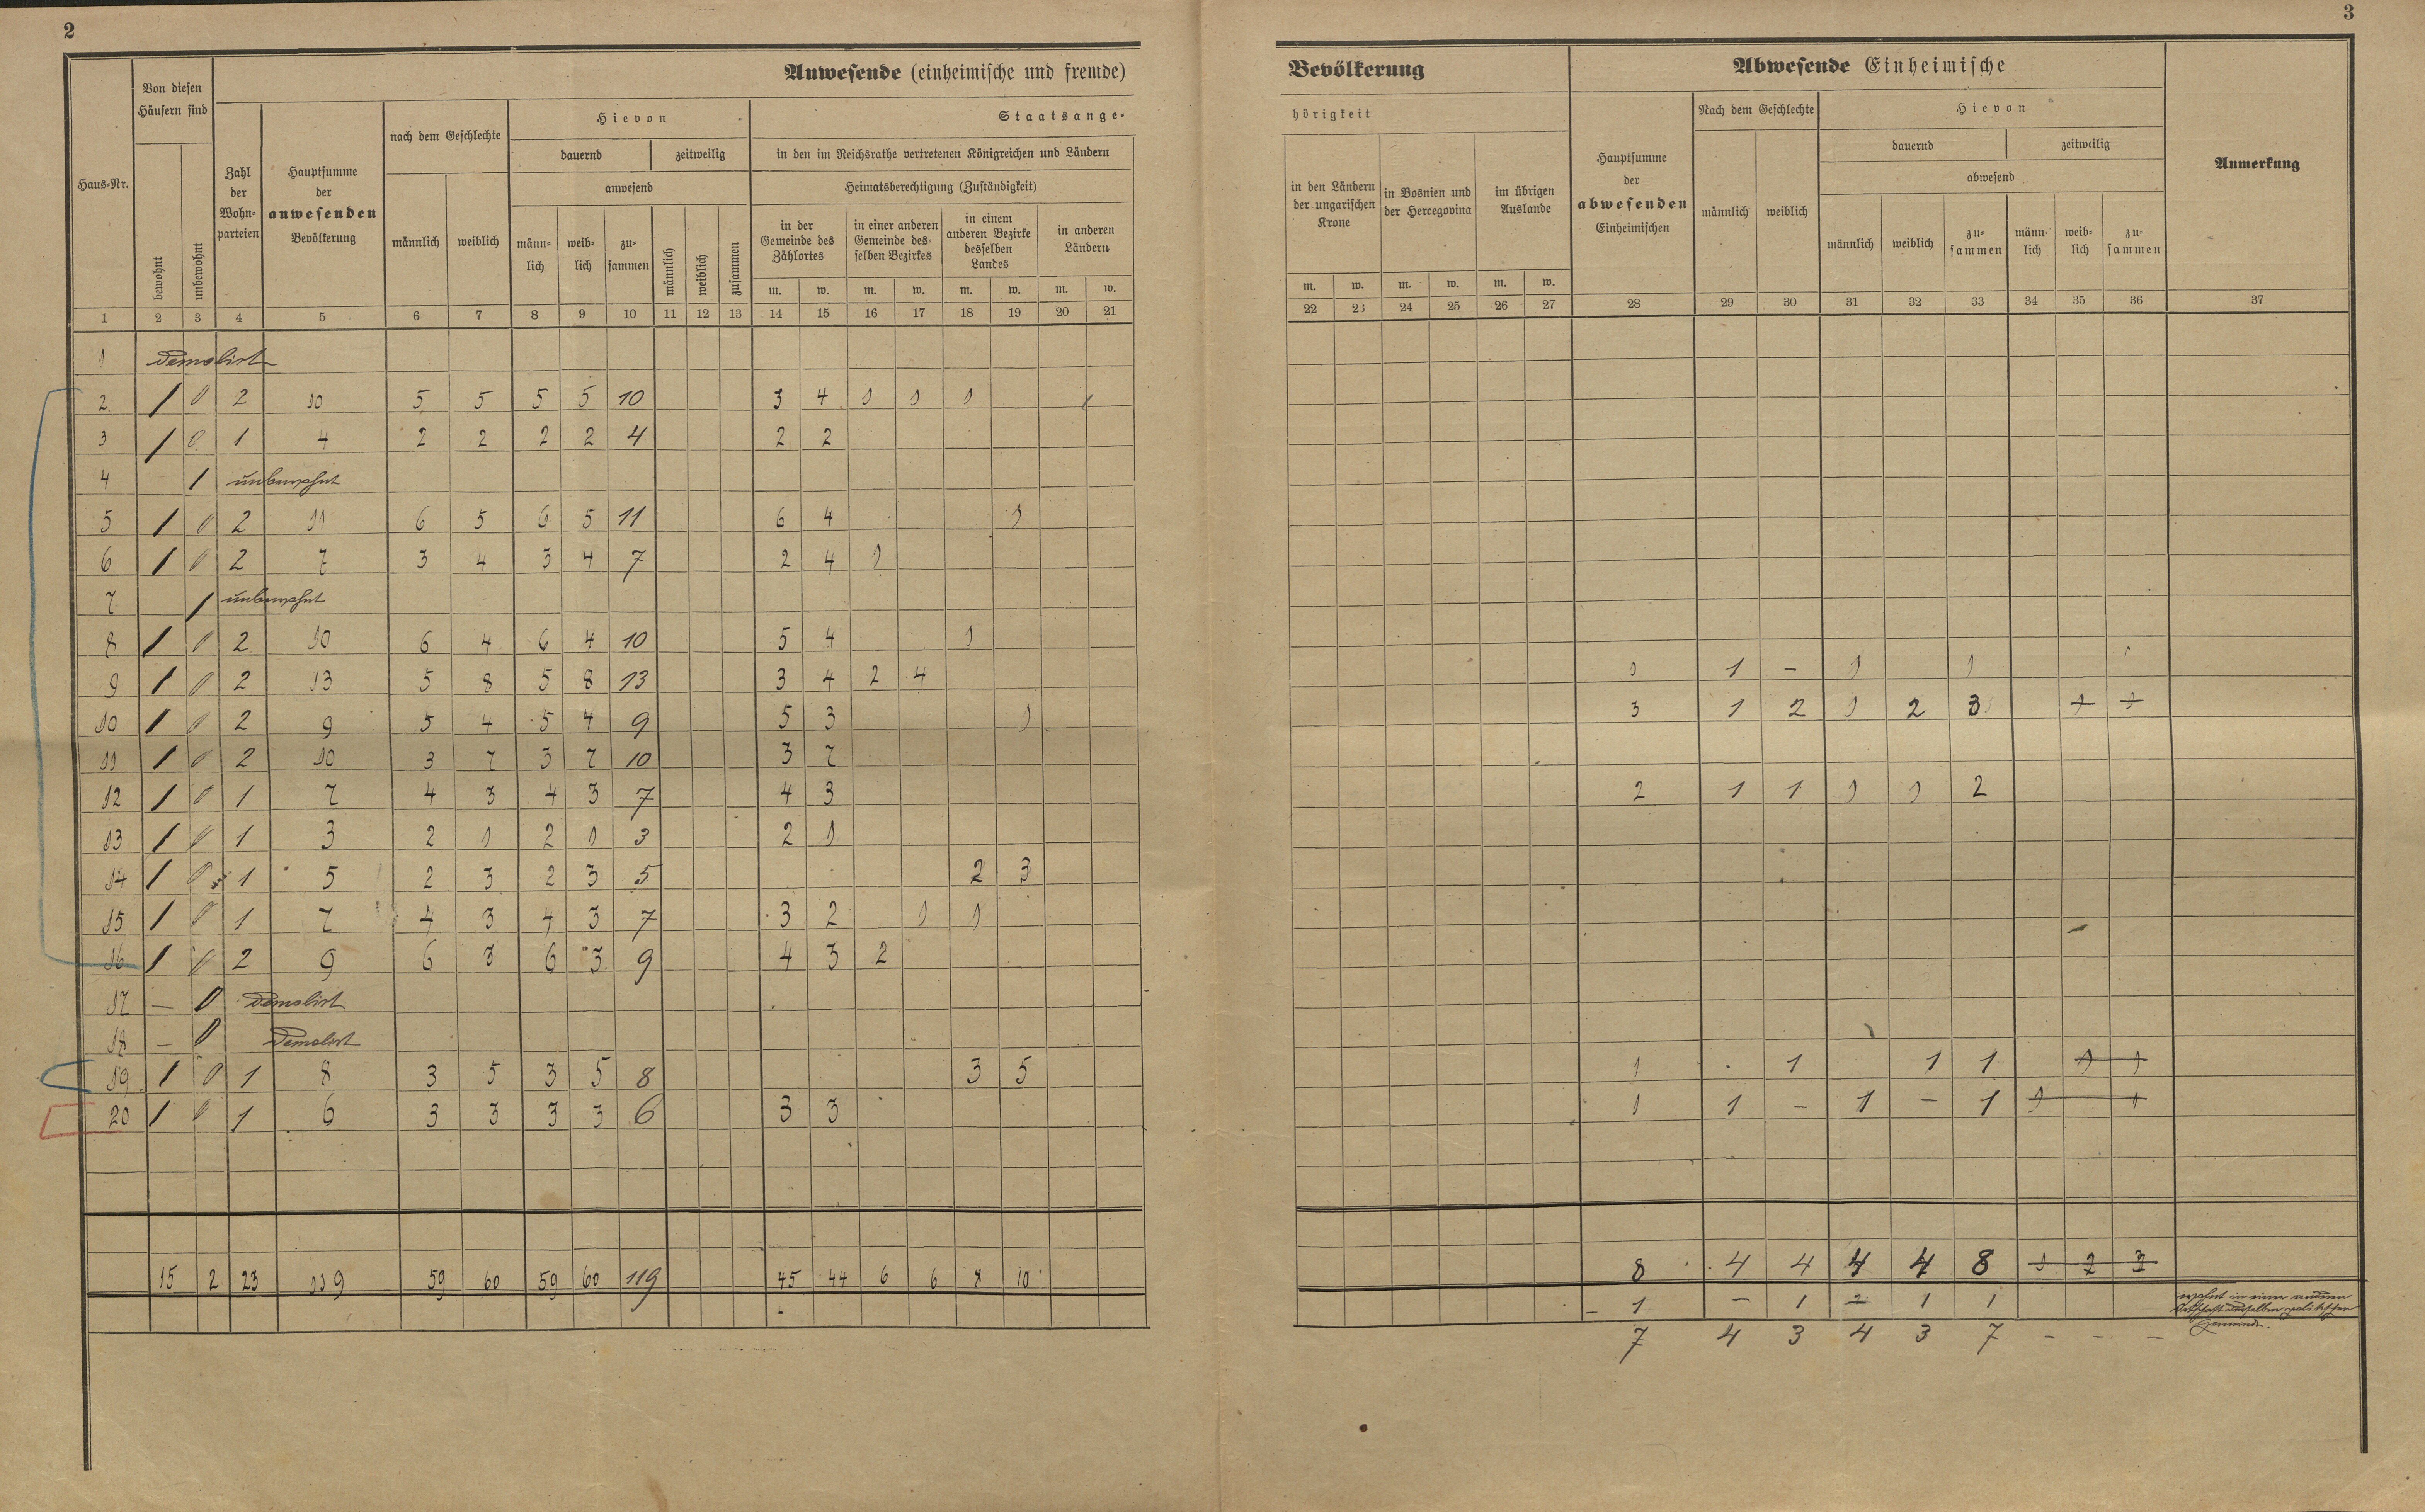 2
3
Anwesende (einheimische und fremde) Bevölkerung
Abwesende Einheimische
Haus-Nr.
Von diesen Häusern sind
bewohnt
unbewohnt
Zahl der Wohn-parteien
Hauptsumme der anwesenden Bevölkerung
nach dem Geschlechte
männlich weiblich
Hievon
dauernd zeitweilig
anwesend
männ-lich weib-lich zu-sammen männlich weiblich zusammen
Staatsange-hörigkeit
in den im Reichsrathe vertretenen Königreichen und Ländern
Heimatsberechtigung (Zuständigkeit)
in der Gemeinde des Zählortes
in einer anderen Gemeinde des-selben Bezirkes
in einem anderen Bezirke desselben Landes
in anderen Ländern
in den Ländern der ungarischen Krone
in Bosnien und der Hercegovina
im übrigen Auslande
m. w. m. w. m. w. m. w. m. w. m. w. m. w.
Hauptsumme der abwesenden Einheimischen
Nach dem Geschlechte
männlich weiblich
Hievon
dauernd zeitweilig
abwesend
männlich weiblich zu-sammen männ-lich weib-lich zu-sammen
Anmerkung
1 2 3 4 5 6 7 8 9 10 11 12 13 14 15 16 17 18 19 20 21 22 23 24 25 26 27 28 29 30 31 32 33 34 35 36 37
1 Demolirt
2 1 0 2 10 5 5 5 5 10 3 4 1 1 1
3 1 0 1 4 2 2 2 2 4 2 2
4 1 unbewohnt
5 1 0 2 11 6 5 6 5 11 6 4 1
6 1 0 2 7 3 4 3 4 7 2 4 1
7 1 unbewohnt
8 1 0 2 10 6 4 6 4 10 5 4 1
9 1 0 2 13 5 8 5 8 13 3 4 2 4 1 1 – 1 1
10 1 0 2 9 5 4 5 4 9 5 3 1 3 1 2 1 2 3 1 1
11 1 0 2 10 3 7 3 7 10 3 7
12 1 0 1 7 4 3 4 3 7 4 3 2 1 1 1 1 2
13 1 0 1 3 2 1 2 1 3 2 1
14 1 0 1 5 2 3 2 3 5 2 3
15 1 0 1 7 4 3 4 3 7 3 2 1 1
16 1 0 2 9 6 3 6 3 9 4 3 2
17 – 0 Demolirt
18 – 0 Demolirt
19 1 0 1 8 3 5 3 5 8 3 5 1 . 1 1 1 1 1
20 1 0 1 6 3 3 3 3 6 3 3 1 1 – 1 – 1 1 1
15 2 23 119 59 60 59 60 119 45 44 6 6 8 10 8 4 4 4 4 8 1 2 3
– 1 – 1 – 1 1 wohnt in einer anderen Ortschaft derselben politischen Gemeinde.
7 4 3 4 3 7 – – –